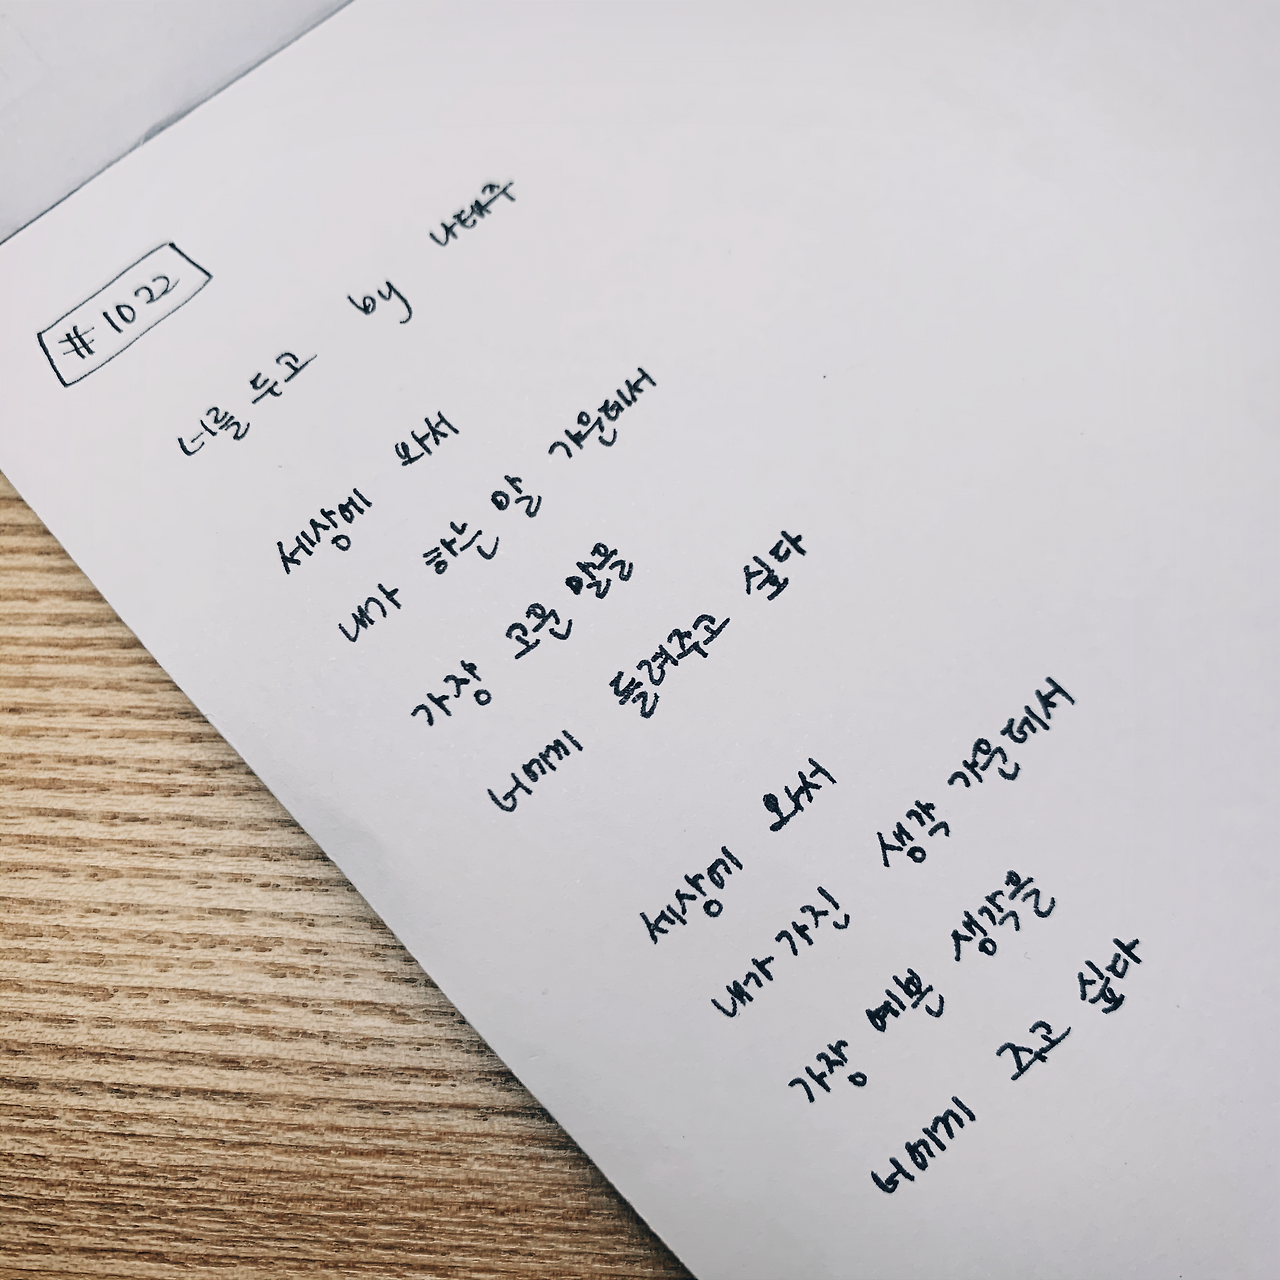 #1022
너를 두고 by 나태주
세상에 와서
내가 하는 말 가운데서
가장 고운 말을
너에게 들려주고 싶다
세상에 와서
내가 가진 생각 가운데서
가장 예쁜 생각을
너에게 주고 싶다